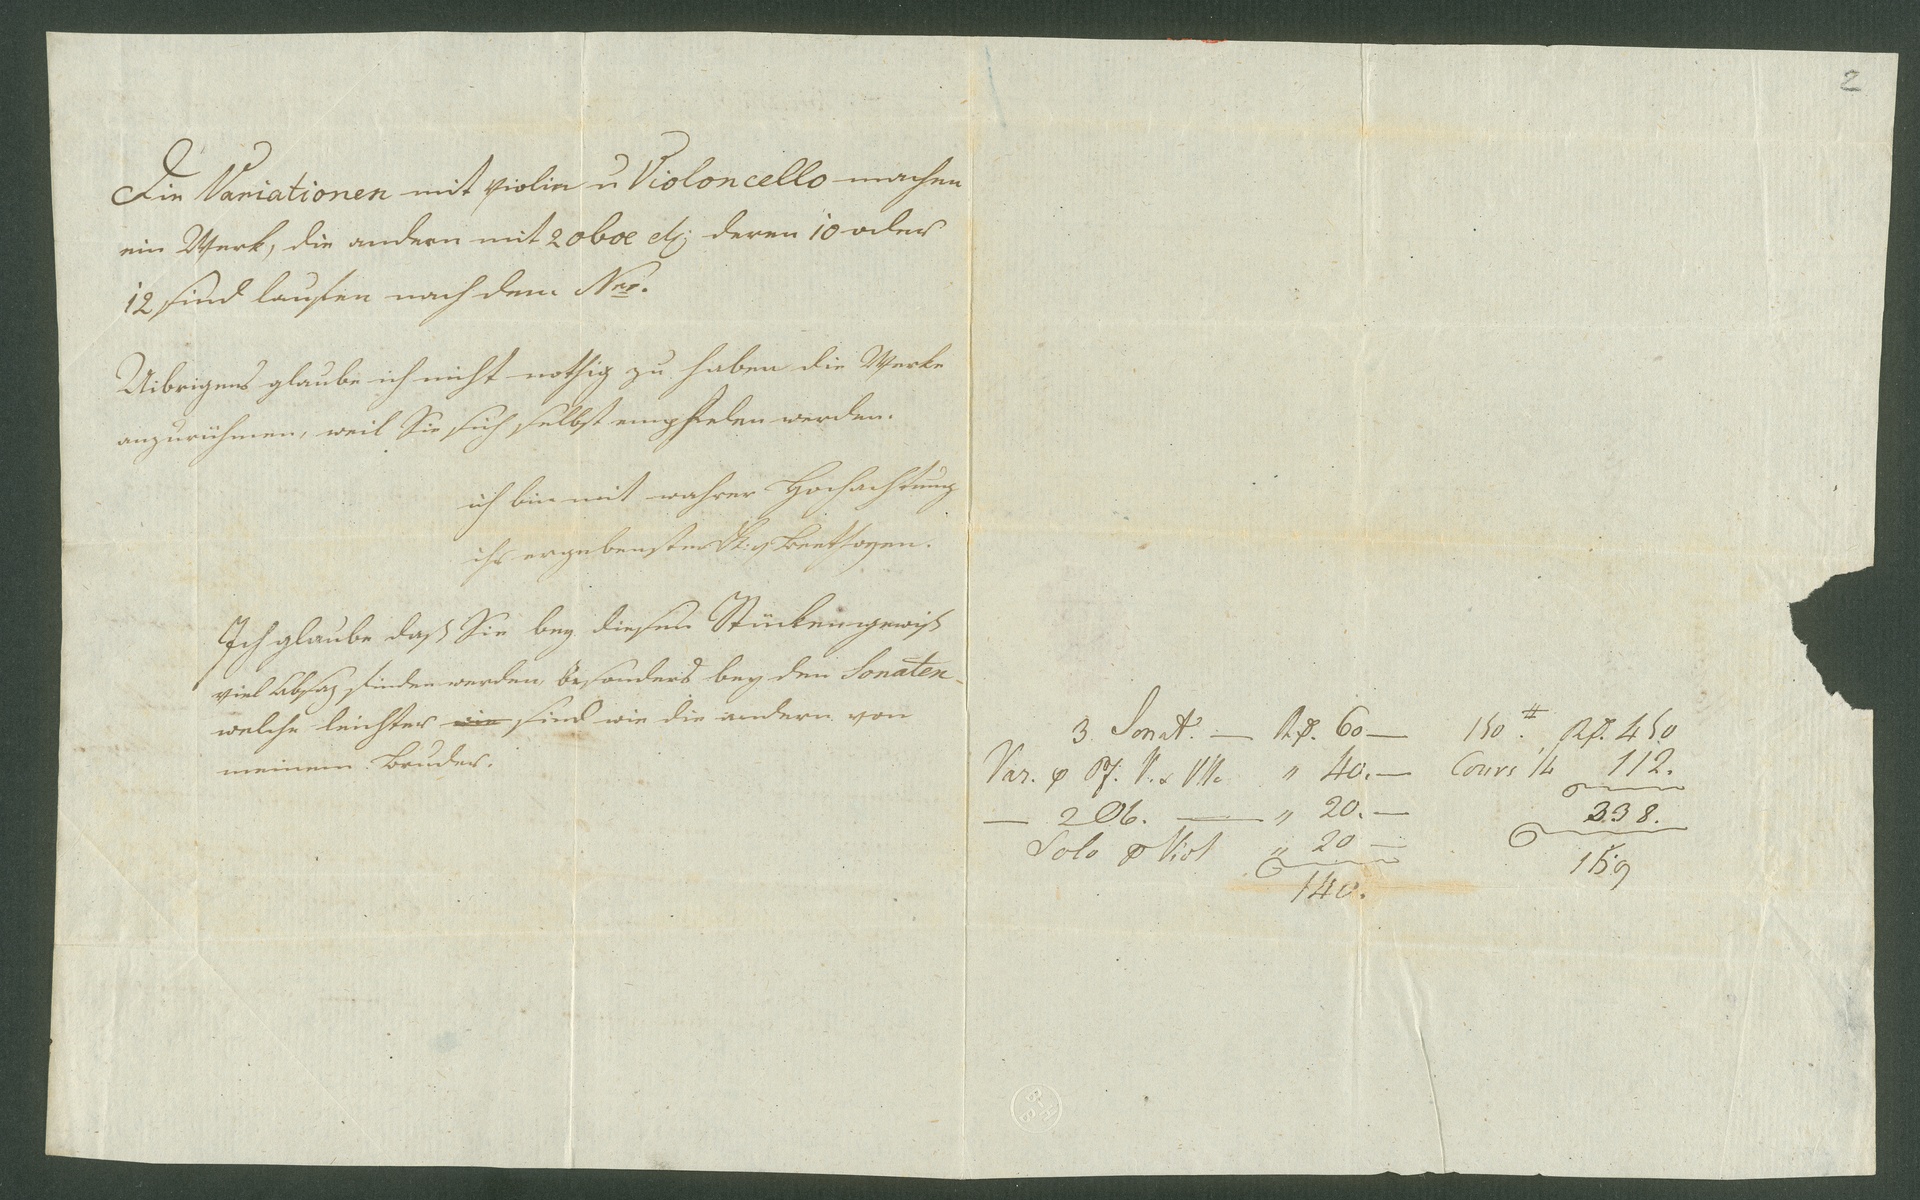 Die Variationen mit violin u Violoncello machen
ein Werk, die andern mit 2 oboe etc; deren 10 oder
12 sind laufen nach den Nro.
Uibrigens glaube ich nicht nothig zu haben die Werke
anzurühmen, weil Sie sich selbst empfelen werden.
ich bin mit wahrer Hochachtung
ihr ergebenster K: v Beethoven.
Ich glaube daß Sie bey diesen Stücken gewiß
viel Absaz finden werden, besonders bey den Sonaten
welche leichter wie sind wie die andern von
meinem Bruder.
2
3 Sonat. — Rth. 60 —
Var. p Pf. V. & Vllo " 40. —
— 2 Ob. — " 20. —
Solo p Viol " 20 —
140.
150 #. Rth. 450
Cours 14 112.
338.
159